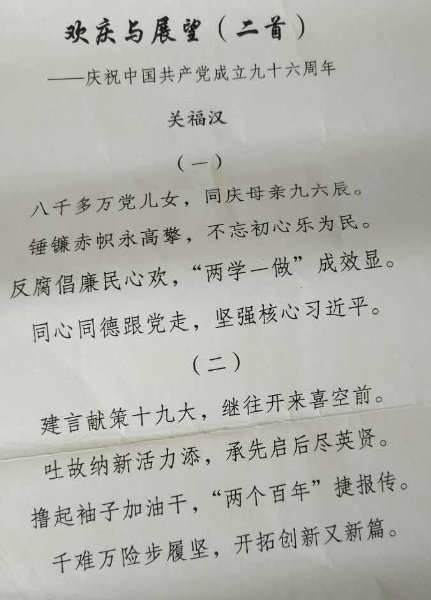 欢庆与展望（二首）
——庆祝中国共产党成立九十六周年
关福汉
（一）
八千多万党儿女，同庆母亲九六辰。
锤镰赤帜永高擎，不忘初心乐为民。
反腐倡廉民心欢，“两学一做”成效显。
同心同德跟党走，坚强核心习近平。
（二）
建言献策十九大，继往开来喜空前。
吐故纳新活力添，承先启后尽英贤。
撸起袖子加油干，“两个百年”捷报传。
千难万险步履坚，开拓创新又新篇。